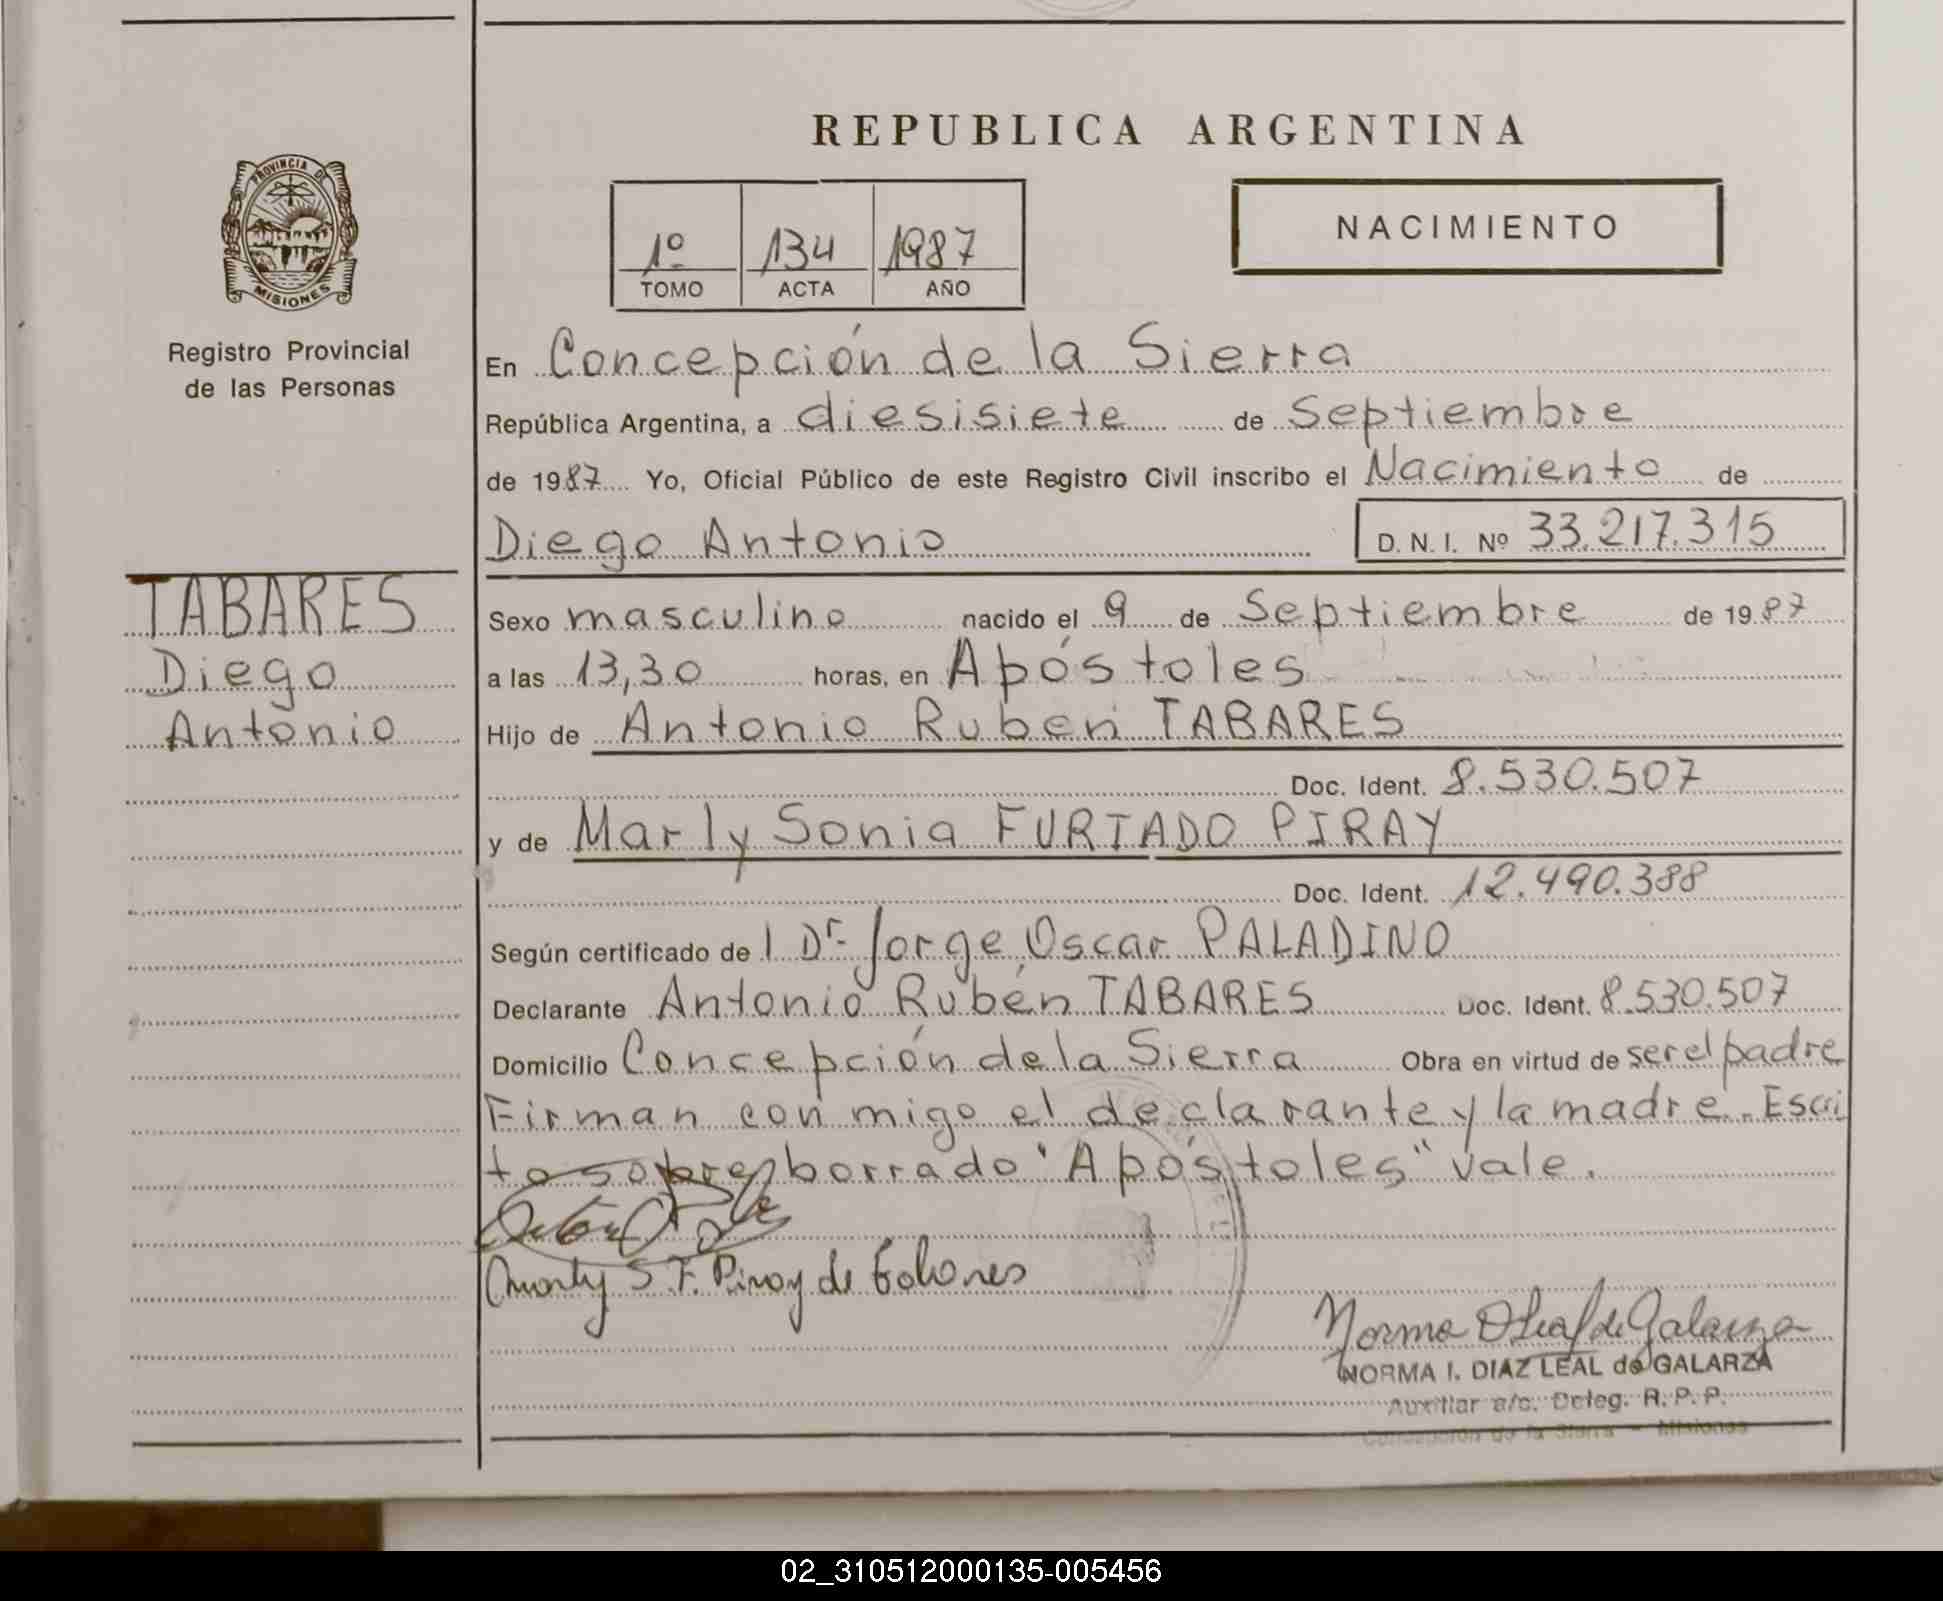 REPUBLICA ARGENTINA
PROVINCIA DE
MISIONES
Registro Provincial
de las Personas
1º 134 1987
TOMO ACTA AÑO
NACIMIENTO
En Concepción de la Sierra
República Argentina, a diesisiete de Septiembre
de 1987 Yo, Oficial Público de este Registro Civil inscribo el Nacimiento de
Diego Antonio D. N. I. Nº 33.217.315
TABARES
Diego
Antonio
Sexo masculino nacido el 9 de Septiembre de 1987
a las 13,30 horas, en Apóstoles
Hijo de Antonio Ruben TABARES
Doc. Ident. 8.530.507
y de Marly Sonia FURTADO PIRAY
Doc. Ident. 12.490.388
Según certificado de l Dr. Jorge Oscar PALADINO
Declarante Antonio Rubén TABARES Doc. Ident. 8.530.507
Domicilio Concepción de la Sierra Obra en virtud de ser el padre
Firman con migo el declarante y la madre. Escri
to sobre borrado "Apóstoles" vale.
Marly S. F. Piray de Tabares
Norma D Leal de Galarza
NORMA I. DIAZ LEAL de GALARZA
Auxiliar a/c. Deleg. R. P. P.
Concepción de la Sierra - Misiones
02_310512000135-005456